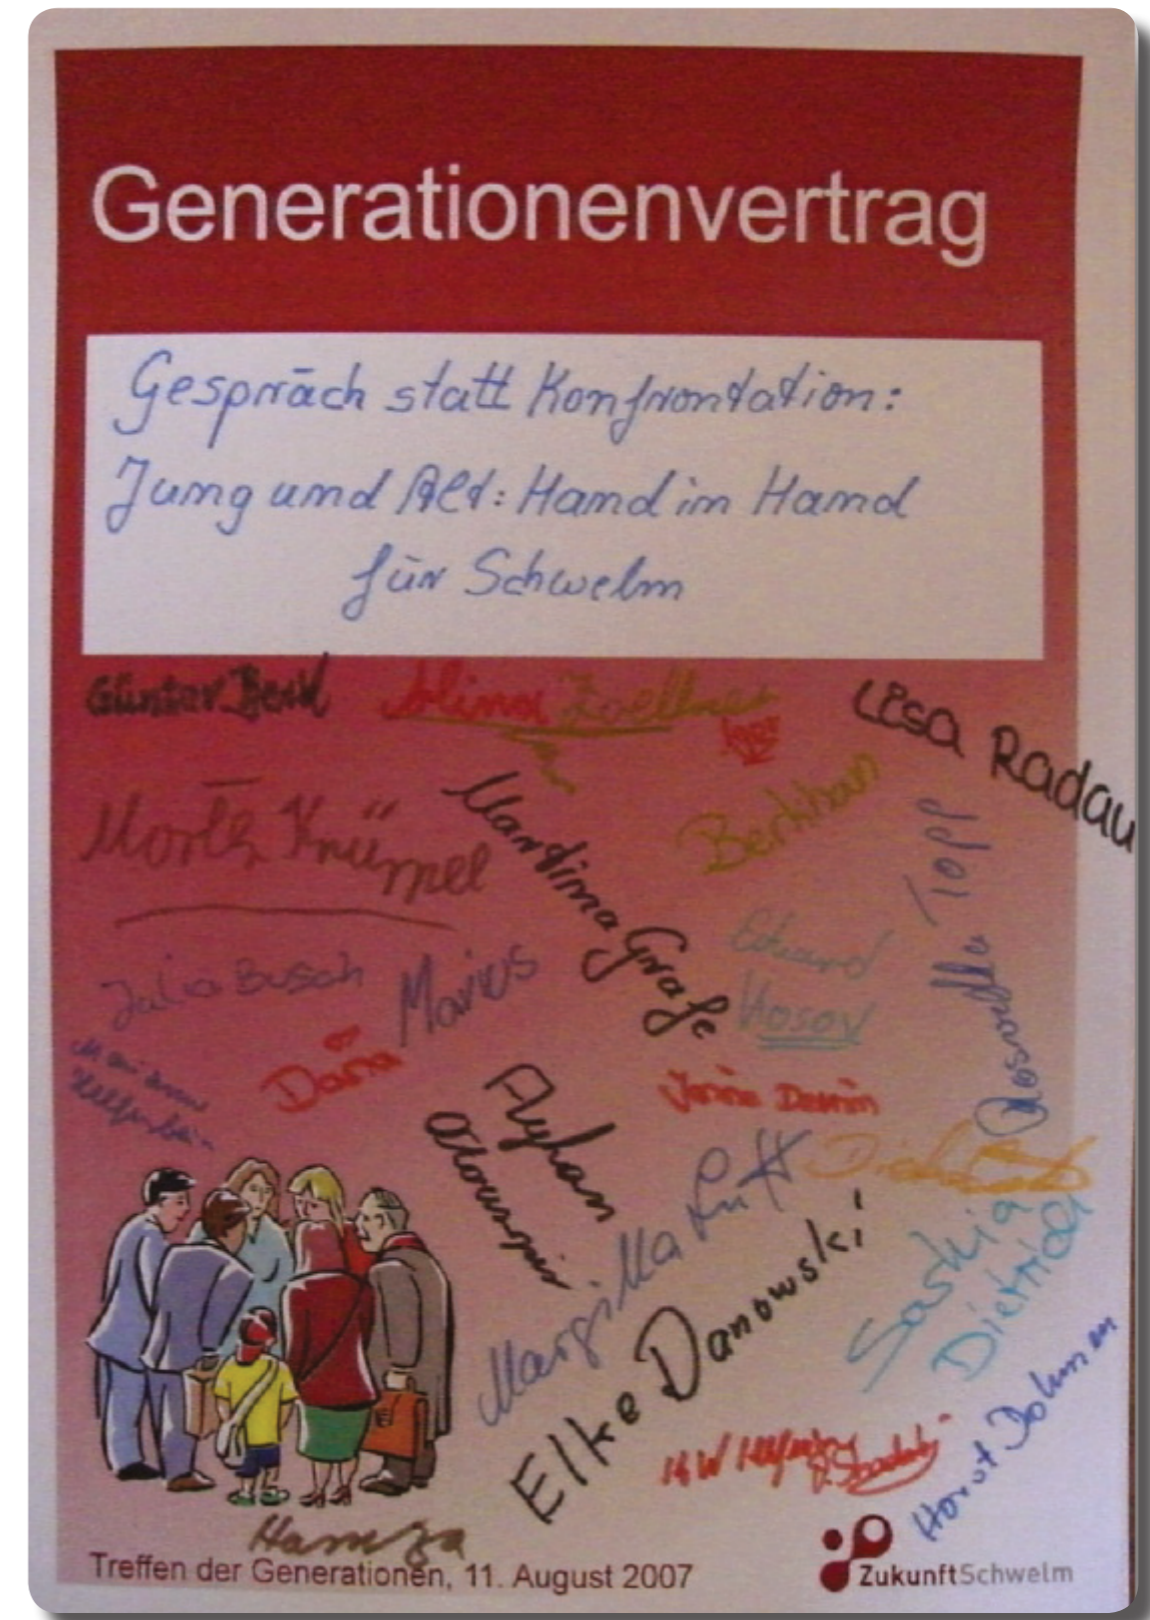 Generationenvertrag
Gespräch statt Konfrontation:
Jung und Alt: Hand in Hand
für Schwelm
Günter Beck
Alina Zoellner
Lisa Radau
Moritz Knümpel
Martina Grafe
Berkhan
Topp
Julia Busch
Marius
Eduard
Kosov
Daria
Ayhan
Demin
Margi Ma
Elke Danowski
Saskia
Dietrich
Horst Dohmen
Hamza
Treffen der Generationen, 11. August 2007
ZukunftSchwelm